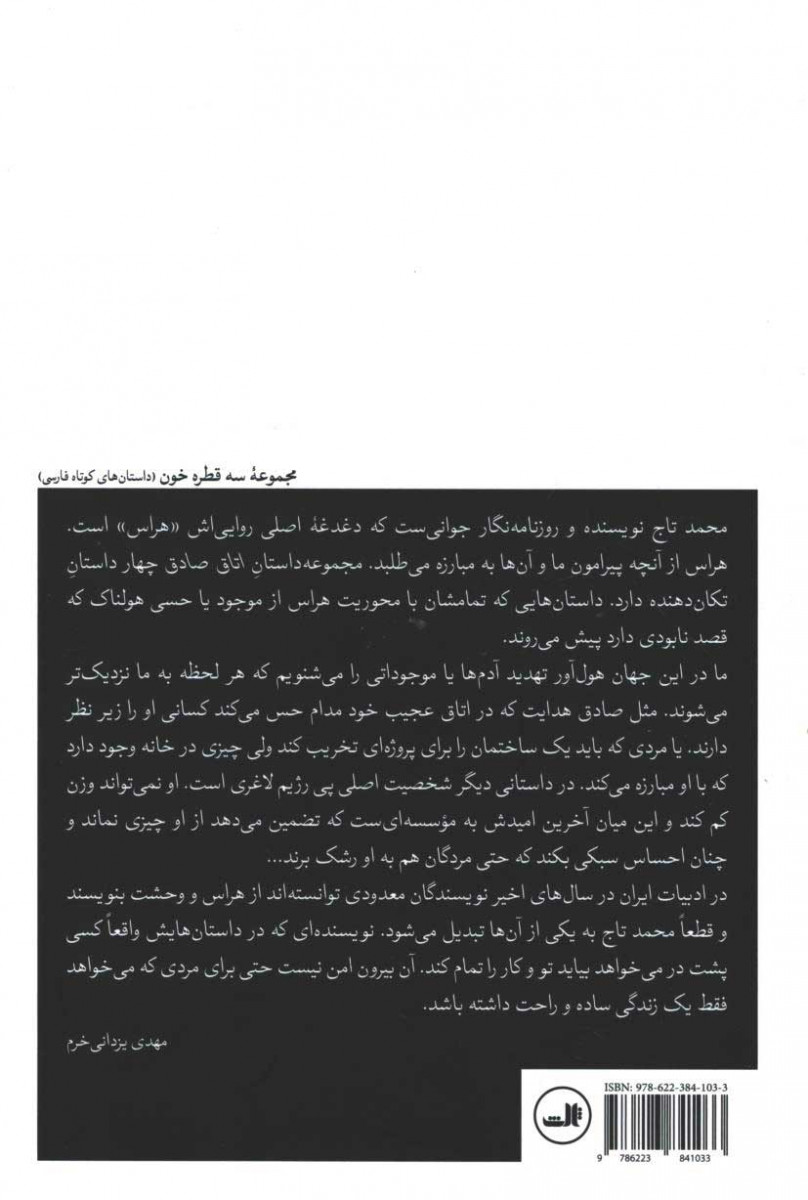 مجموعهٔ سه قطره خون (داستان‌های کوتاه فارسی)
محمد تاج نویسنده و روزنامه‌نگار جوانی‌ست که دغدغهٔ اصلی روایی‌اش «هراس» است.
هراس از آنچه پیرامون ما و آن‌ها به مبارزه می‌طلبد. مجموعه‌داستانِ اتاق صادق چهار داستانِ
تکان‌دهنده دارد. داستان‌هایی که تمامشان با محوریت هراس از موجود یا حسی هولناک که
قصد نابودی دارد پیش می‌روند.
ما در این جهان هول‌آور تهدید آدم‌ها یا موجوداتی را می‌شنویم که هر لحظه به ما نزدیک‌تر
می‌شوند. مثل صادق هدایت که در اتاق عجیب خود مدام حس می‌کند کسانی او را زیر نظر
دارند، یا مردی که باید یک ساختمان را برای پروژه‌ای تخریب کند ولی چیزی در خانه وجود دارد
که با او مبارزه می‌کند. در داستانی دیگر شخصیت اصلی پی رژیم لاغری است. او نمی‌تواند وزن
کم کند و این میان آخرین امیدش به مؤسسه‌ای‌ست که تضمین می‌دهد از او چیزی نماند و
چنان احساس سبکی بکند که حتی مردگان هم به او رشک برند...
در ادبیات ایران در سال‌های اخیر نویسندگان معدودی توانسته‌اند از هراس و وحشت بنویسند
و قطعاً محمد تاج به یکی از آن‌ها تبدیل می‌شود. نویسنده‌ای که در داستان‌هایش واقعاً کسی
پشت در می‌خواهد بیاید تو و کار را تمام کند. آن بیرون امن نیست حتی برای مردی که می‌خواهد
فقط یک زندگی ساده و راحت داشته باشد.
مهدی یزدانی‌خرم
ISBN: 978-622-384-103-3
ثالث
9 786223 841033